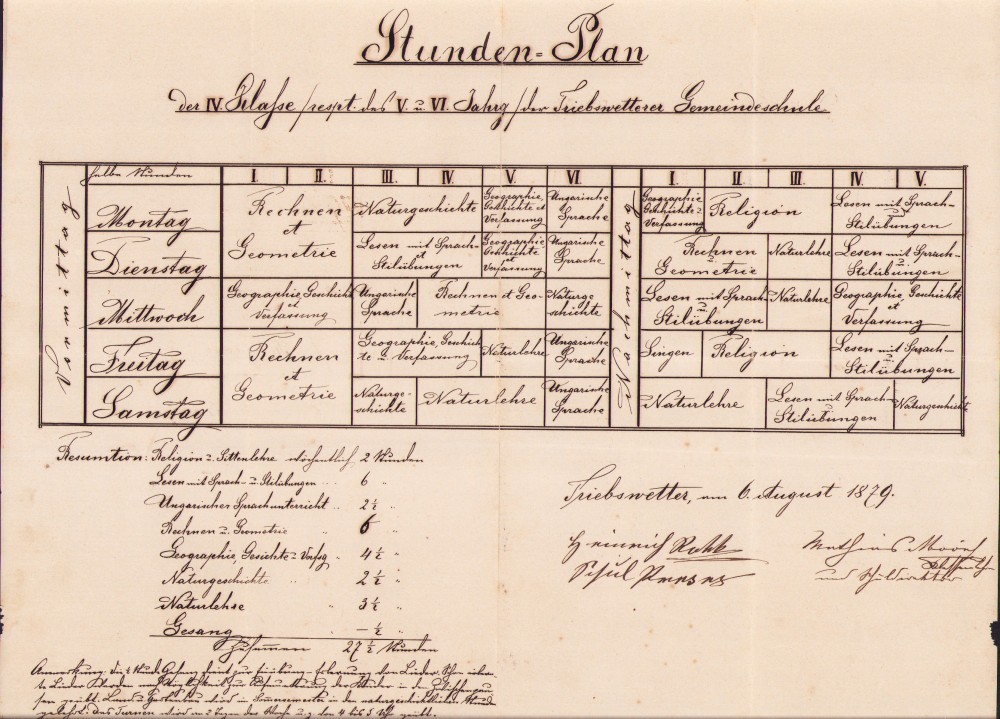 Stunden-Plan
der IV. Klasse /respt. des V. u. VI. Jahrg/ der Triebswetterer Gemeindeschule.
halbe Stunden I. II. III. IV. V. VI I. II. III. IV. V.
Vormittag
Nachmittag
Montag
Rechnen et Geometrie
Naturgeschichte
Geographie, Geschichte et Verfassung
Ungarische Sprache
Geographie Geschichte u Verfassung
Religion
Lesen mit Sprach- u Stilübungen
Dienstag
Lesen mit Sprach- et Stilübungen
Geographie Geschichte et Verfassung
Ungarische Sprache
Rechnen u. Geometrie
Naturlehre
Lesen mit Sprach- u. Stilübungen
Mittwoch
Geographie, Geschichte et Verfassung
Ungarische Sprache
Rechnen et Geometrie
Naturgeschichte
Lesen mit Sprach u Stilübungen
Naturlehre
Geographie, Geschichte et Verfassung
Freitag
Rechnen et Geometrie
Geographie, Geschichte u. Verfassung
Naturlehre
Ungarische Sprache
Singen
Religion
Lesen mit Sprach- u Stilübungen
Samstag
Naturgeschichte
Naturlehre
Ungarische Sprache
Naturlehre
Lesen mit Sprach- u Stilübungen
Naturgeschichte
Resumtion: Religion u. Sittenlehre wöchentlich 2 Stunden
Lesen mit Sprach- u Stilübungen .. 6 "
Ungarischer Sprachunterricht .. 2 ½ "
Rechnen u. Geometrie .. 6 "
Geographie, Gesichte u Verfsg .. 4 ½ "
Naturgeschichte .. 2 ½ "
Naturlehre .. 3 ½ "
Gesang .. – ½ "
Zusammen 27 ½ Stunden
Triebswetter, am 6. August 1879.
Heinrich
Schul
Mathias
und Schuldirektor
Anmerkung: die ½ Stunde Gesang dient zur